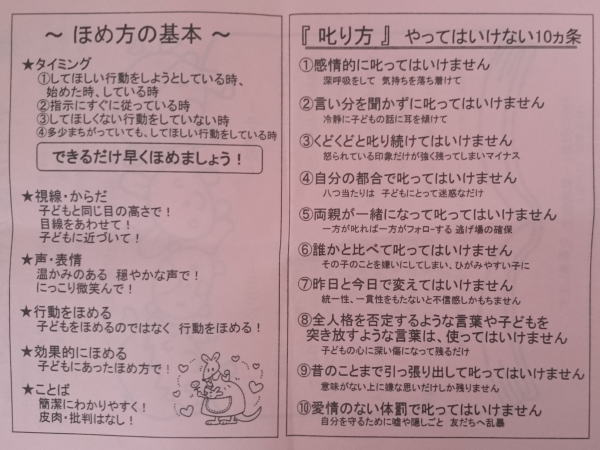 ～ ほめ方の基本 ～
★タイミング
①してほしい行動をしようとしている時、
始めた時、している時
②指示にすぐに従っている時
③してほしくない行動をしていない時
④多少まちがっていても、してほしい行動をしている時
できるだけ早くほめましょう！
★視線・からだ
子どもと同じ目の高さで！
目線をあわせて！
子どもに近づいて！
★声・表情
温かみのある 穏やかな声で！
にっこり微笑んで！
★行動をほめる
子どもをほめるのではなく 行動をほめる！
★効果的にほめる
子どもにあったほめ方で！
★ことば
簡潔にわかりやすく！
皮肉・批判はなし！
『 叱り方 』 やってはいけない10ヵ条
①感情的に叱ってはいけません
深呼吸をして 気持ちを落ち着けて
②言い分を聞かずに叱ってはいけません
冷静に子どもの話に耳を傾けて
③くどくどと叱り続けてはいけません
怒られている印象だけが強く残ってしまいマイナス
④自分の都合で叱ってはいけません
八つ当たりは 子どもにとって迷惑なだけ
⑤両親が一緒になって叱ってはいけません
一方が叱れば一方がフォローする 逃げ場の確保
⑥誰かと比べて叱ってはいけません
その子のことを嫌いにしてしまい、ひがみやすい子に
⑦昨日と今日で変えてはいけません
統一性、一貫性をもたないと不信感しかもちません
⑧全人格を否定するような言葉や子どもを
突き放すような言葉は、使ってはいけません
子どもの心に深い傷になって残るだけ
⑨昔のことまで引っ張り出して叱ってはいけません
意味がない上に嫌な思いだけしか残りません
⑩愛情のない体罰で叱ってはいけません
自分を守るために嘘や隠しごと 友だちへ乱暴